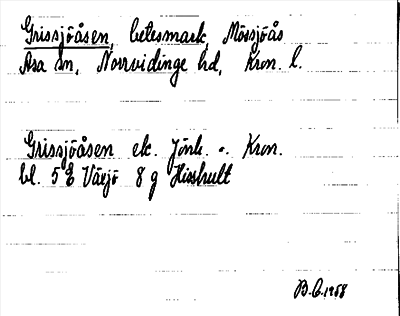 Grissjöåsen, betesmark, Mössjöås
Asa sn, Norrvidinge hd, Kron. l.
Grissjöåsen ek. Jönk. o. Kron.
bl. 5 E Växjö 8 g Hisshult
B.G. 1968